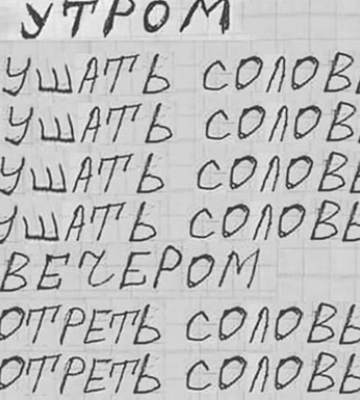 УТРОМ
УШАТЬ СОЛОВЬ
УШАТЬ СОЛОВ
УШАТЬ СОЛОВЬ
УШАТЬ СОЛОВЬ
ВЕЧЕРОМ
ОТРЕТЬ СОЛОВЬ
ОТРЕТЬ СОЛОВЬ